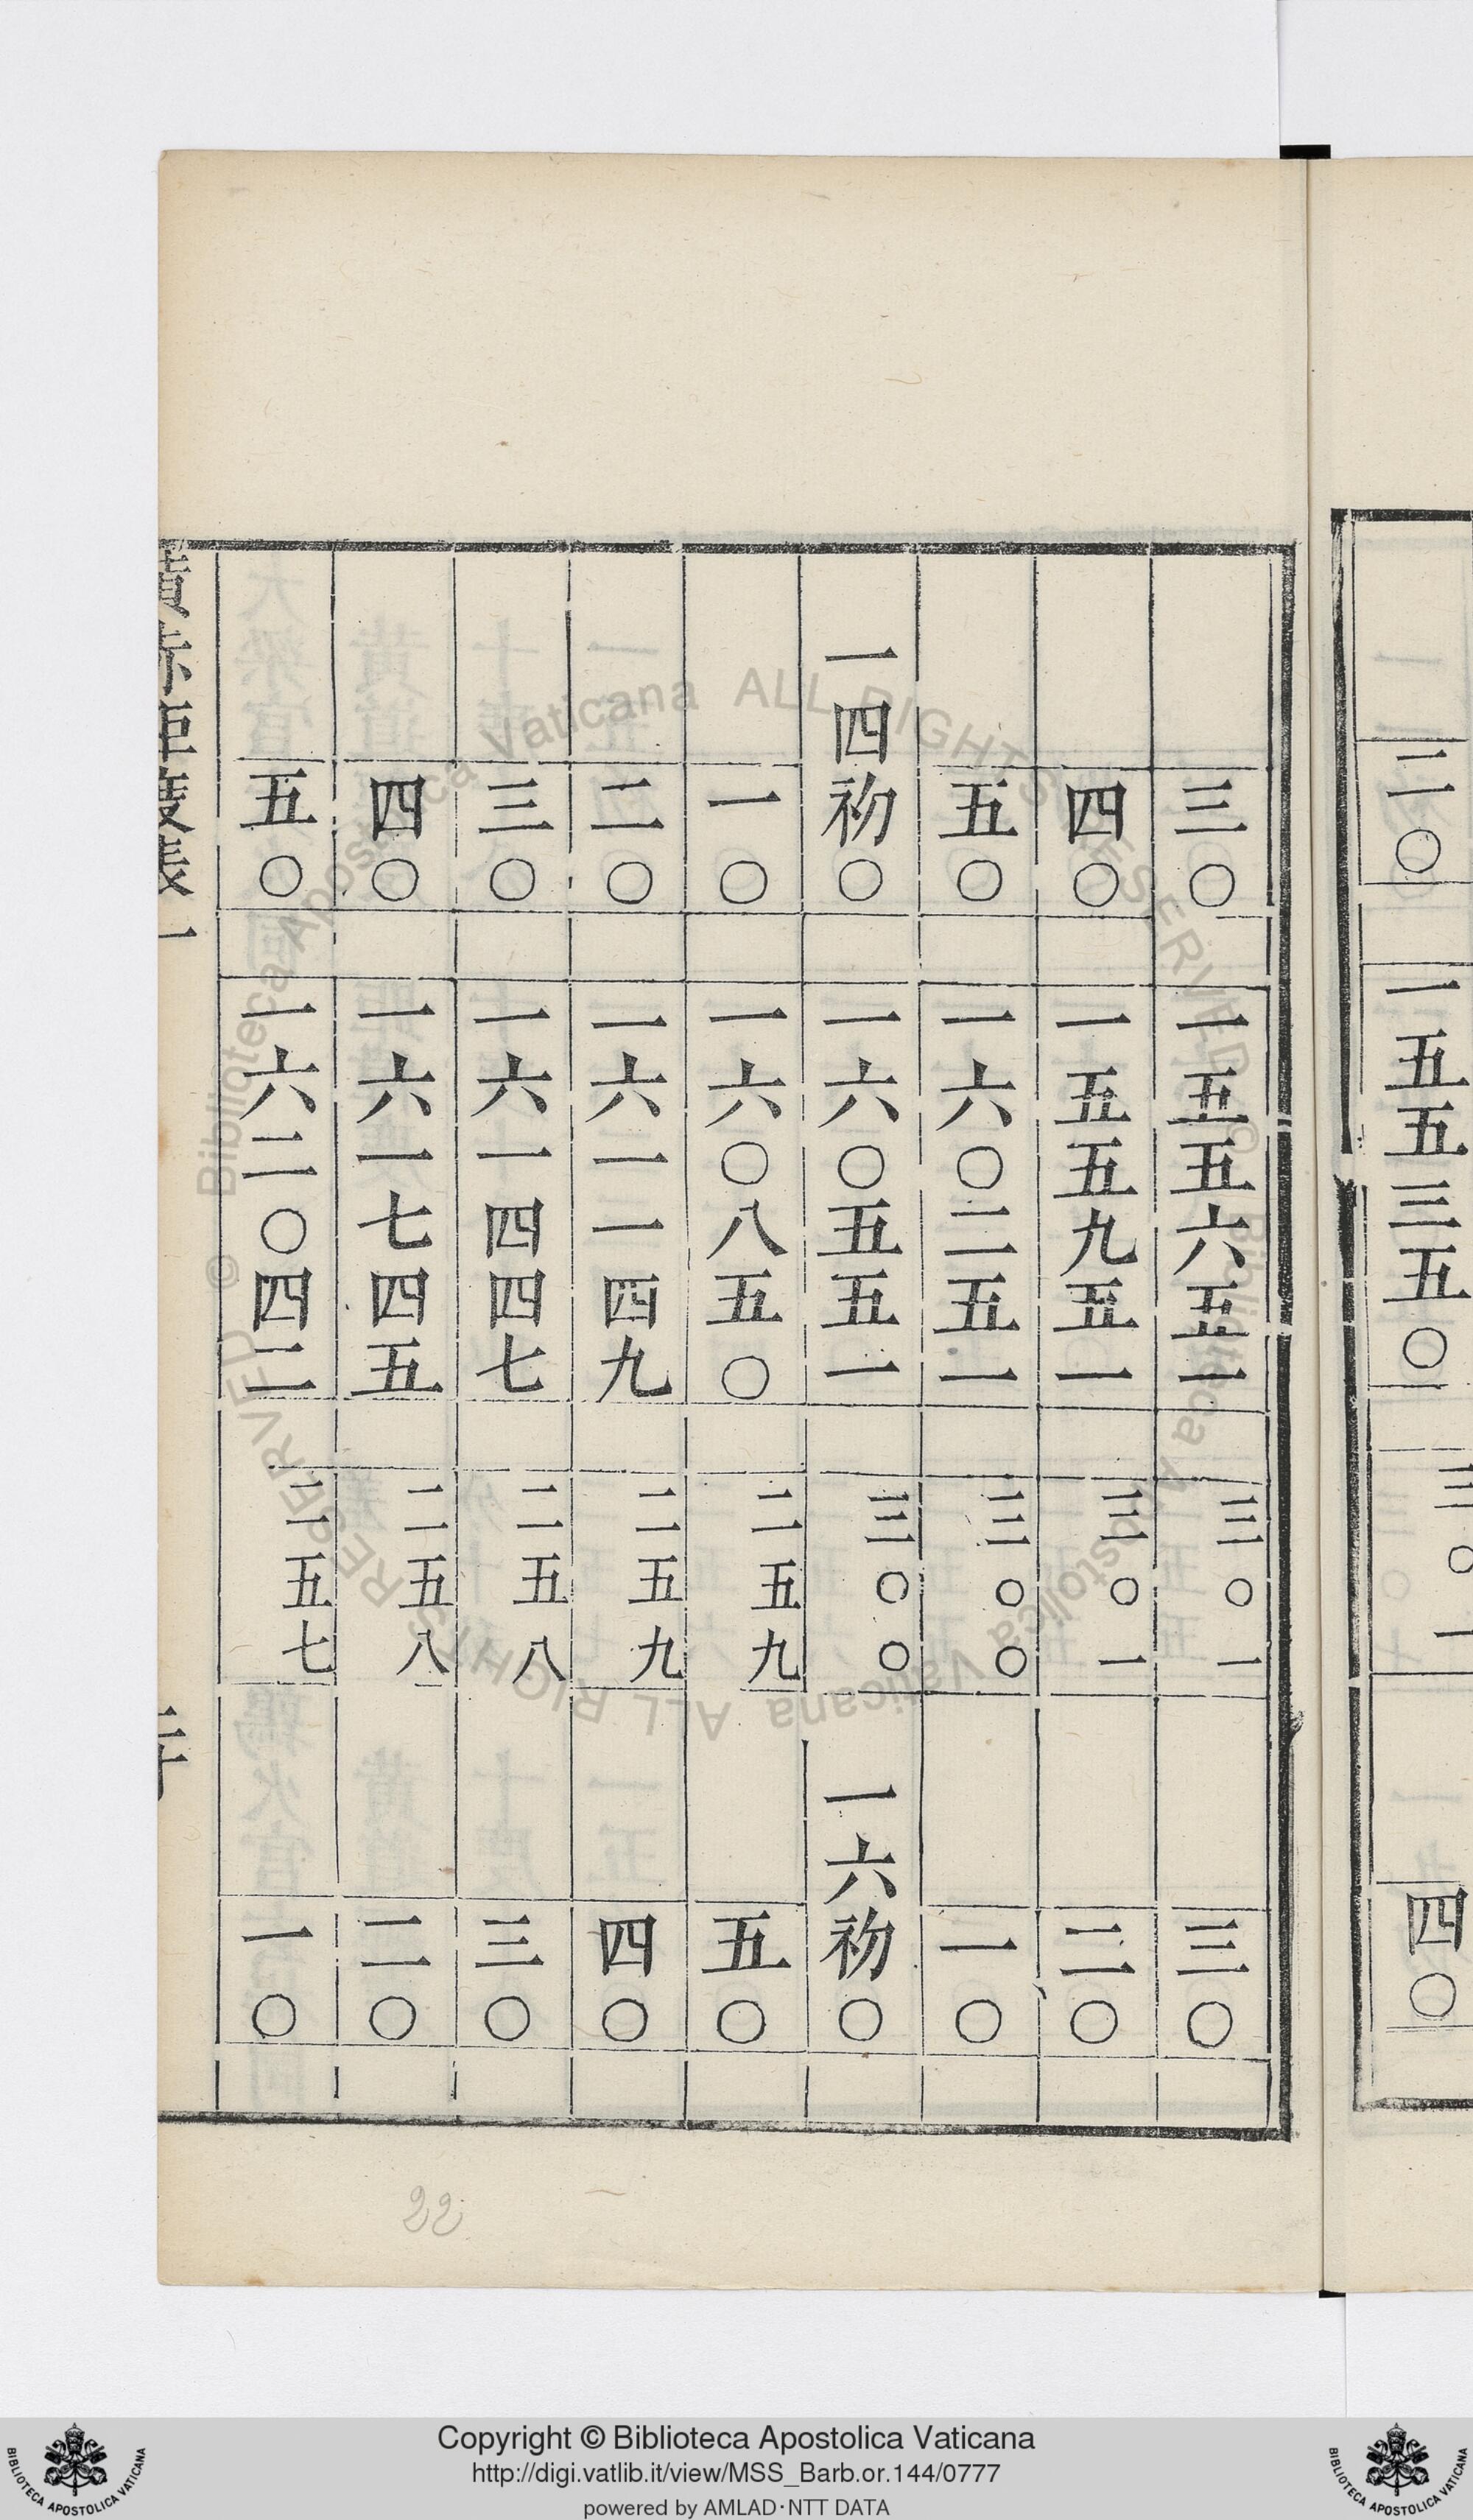 二〇 一五五三五〇 二三〇一 四〇
三〇 一五五六五一 二三〇一 三〇
四〇 一五五九五一 二三〇一 二〇
五〇 一六〇二五一 二三〇〇 一〇
一四初〇 一六〇五五一 二三〇〇 一六初〇
一〇 一六〇八五〇 二二五九 五〇
二〇 一六一一四九 二二五九 四〇
三〇 一六一四四七 二二五八 三〇
四〇 一六一七四五 二二五八 二〇
五〇 一六二〇四二 二二五七 一〇
22
Copyright © Biblioteca Apostolica Vaticana
http://digi.vatlib.it/view/MSS_Barb.or.144/0777
powered by AMLAD·NTT DATA